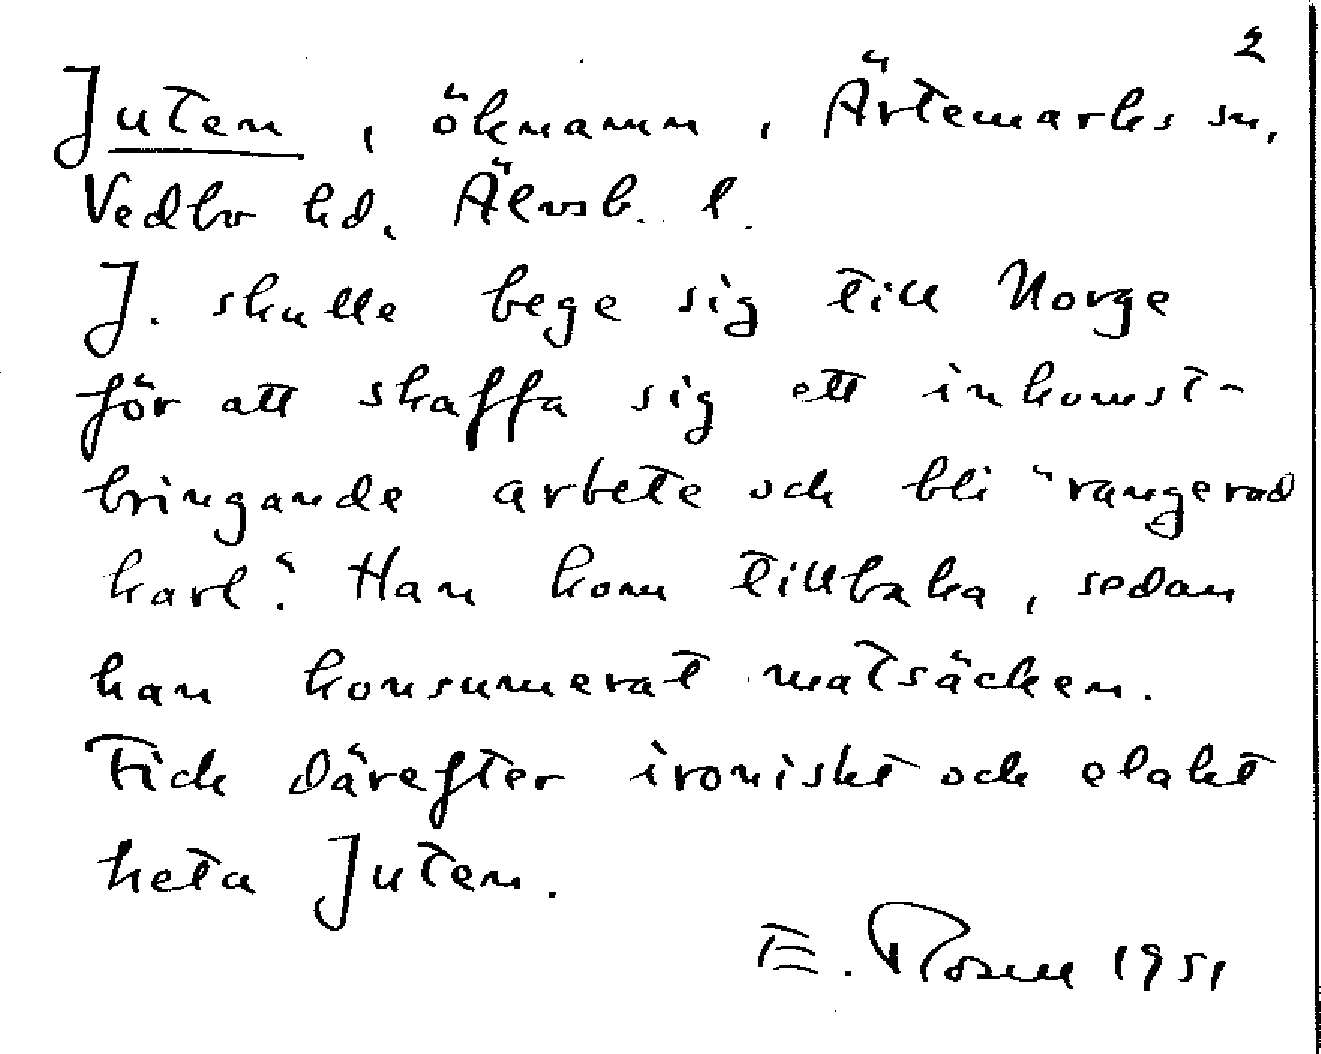 2
Juten, öknamn, Ärtemarks sn,
Vedbo hd, Älvsb. l.
J. skulle bege sig till Norge
för att skaffa sig ett inkomst-
bringande arbete och bli "rangerad
karl". Han kom tillbaka, sedan
han konsumerat matsäcken.
Fick därefter ironiskt och elakt
heta Juten.
E. Rosell 1951